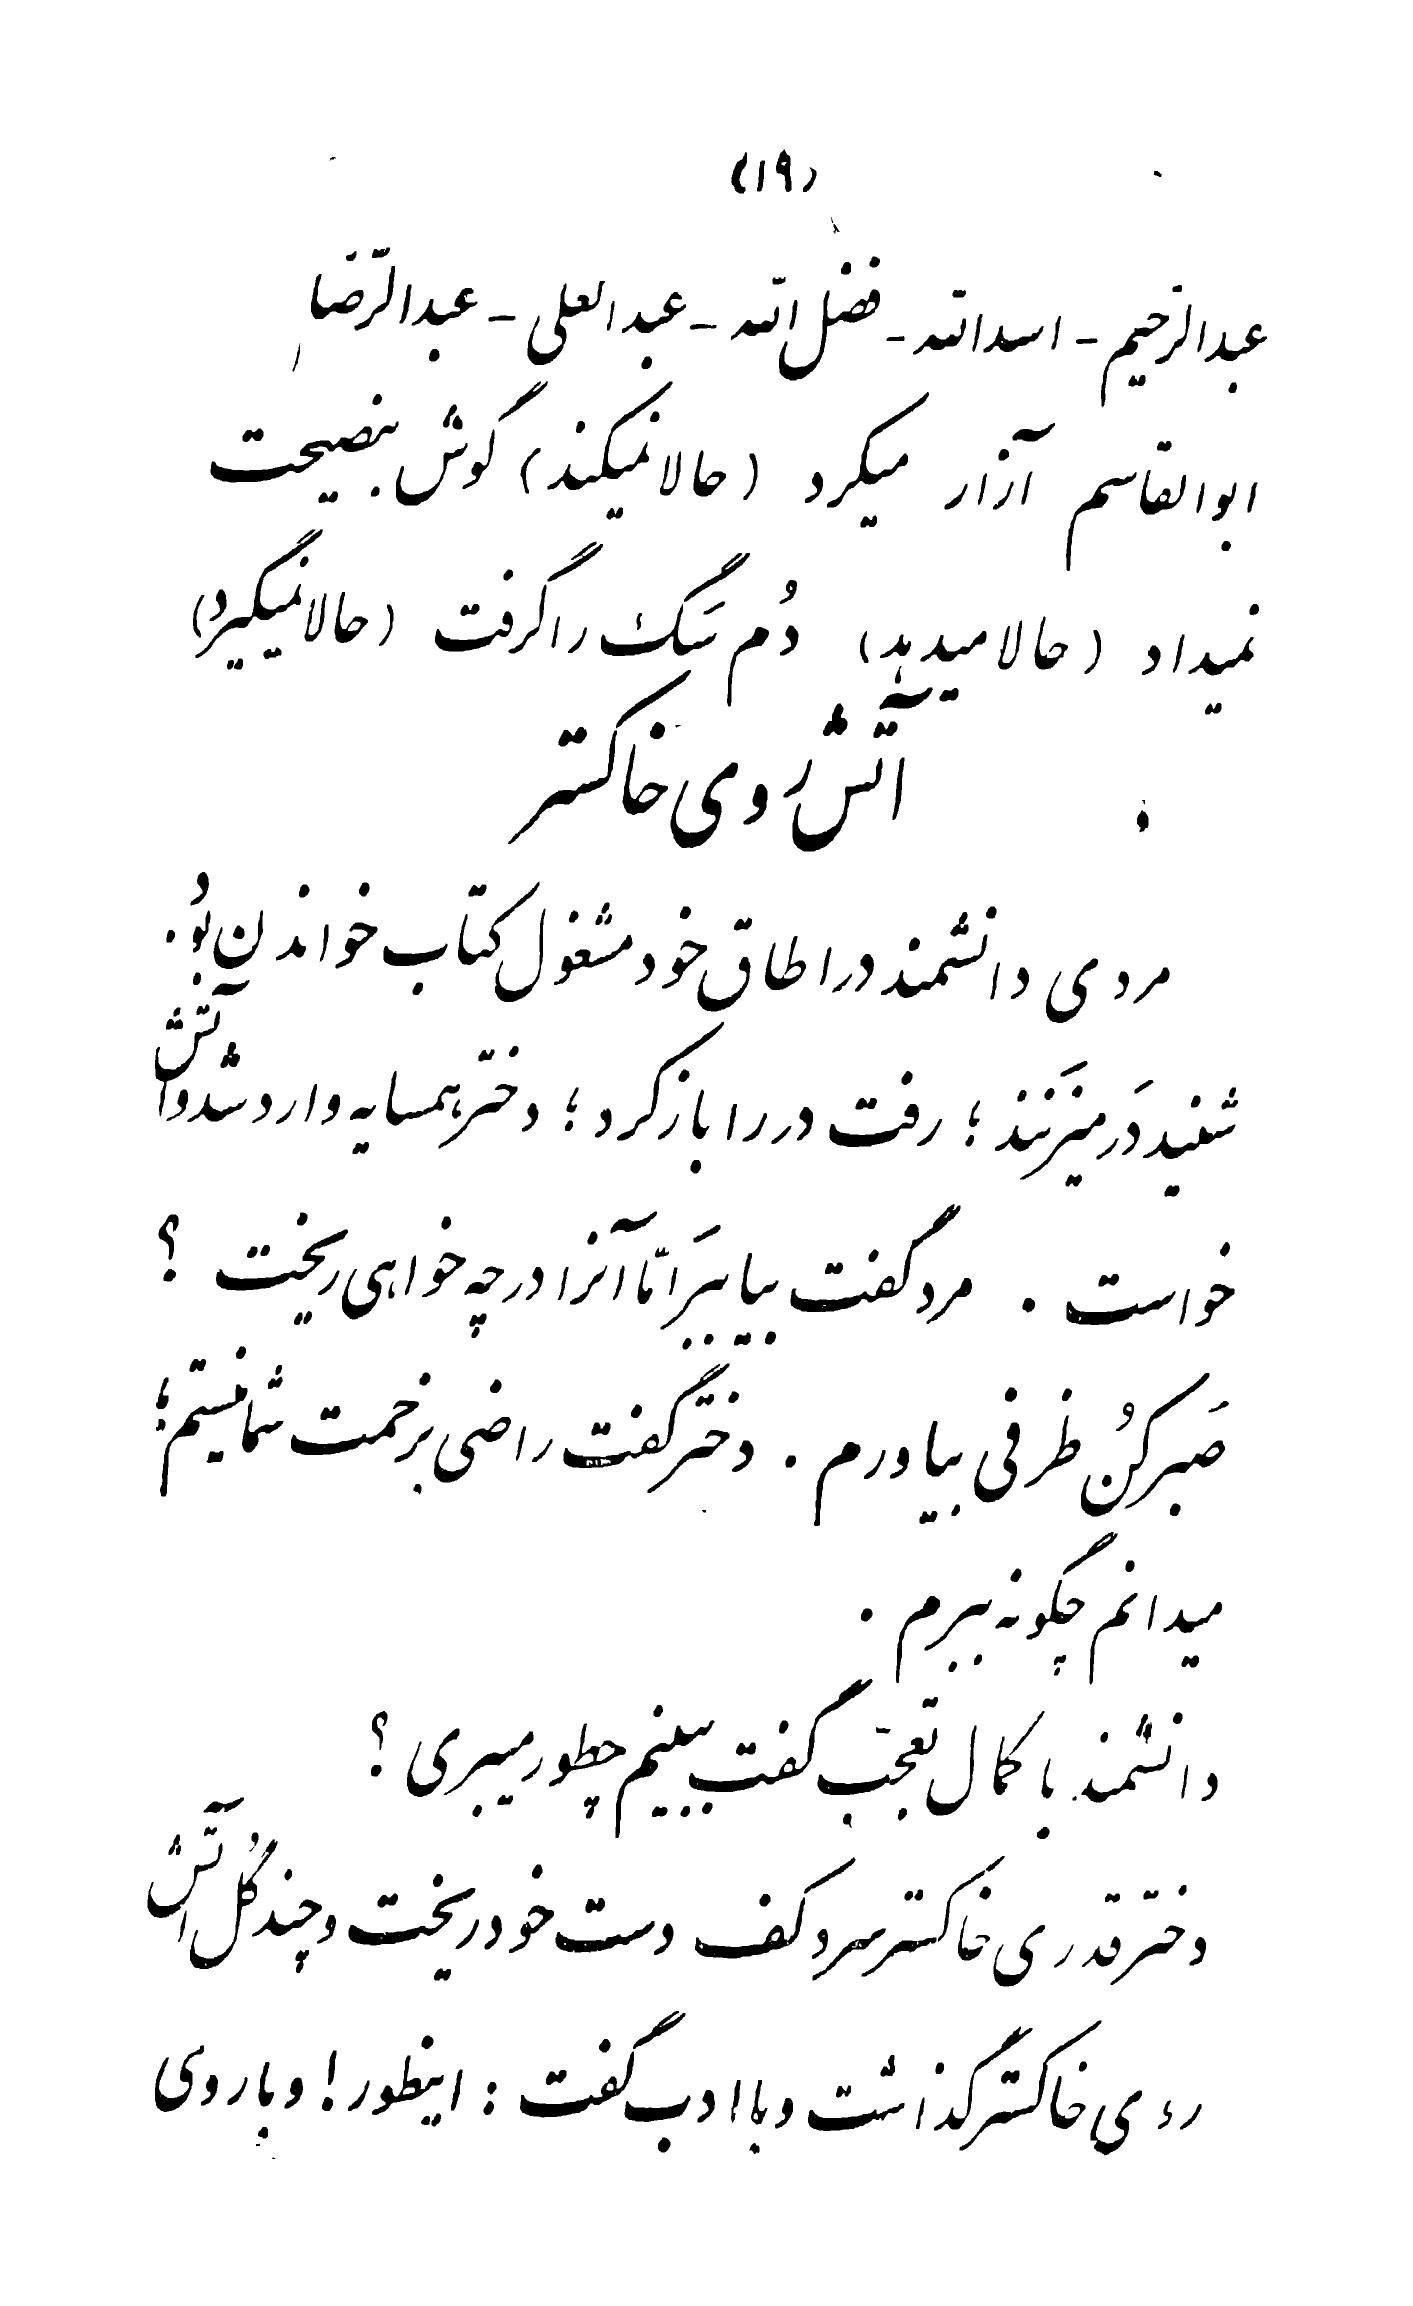 (۱۹)
عبدالرّحیم - اسدالله - فضل الله - عبدالعلی - عبدالرّضا
ابوالقاسم آزار میکرد (حالا نمیکند) گوش بنصیحت
نمیداد (حالا میدهد) دُم سَگ را گرفت (حالا نمیگیرد)
آتش روی خاکستر
مردی دانشمند در اطاق خود مشغول کتاب خواندن بُود.
شنید دَر میزَنند ؛ رفت در را باز کرد ؛ دختر همسایه وارد شد و آتش
خواست . مرد گفت بیا ببَر امّا آنرا در چه خواهی ریخت ؟
صَبر کنُ ظرفی بیاورم . دختر گفت راضی بزحمت شما نیستم ؛
میدانم چگونه ببرم .
دانشمند با کمال تعجّب گفت ببینم چطور میبری ؟
دختر قدری خاکستر سرد کف دست خود ریخت و چند گُل آتش
روی خاکستر گذاشت و با ادب گفت : اینطور ! و با روی